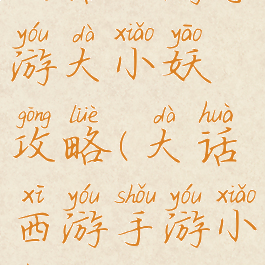 yóu dà xiǎo yāo
游大小妖
gōng lüè dà huà
攻略(大话
xī yóu shǒu yóu xiǎo
西游手游小